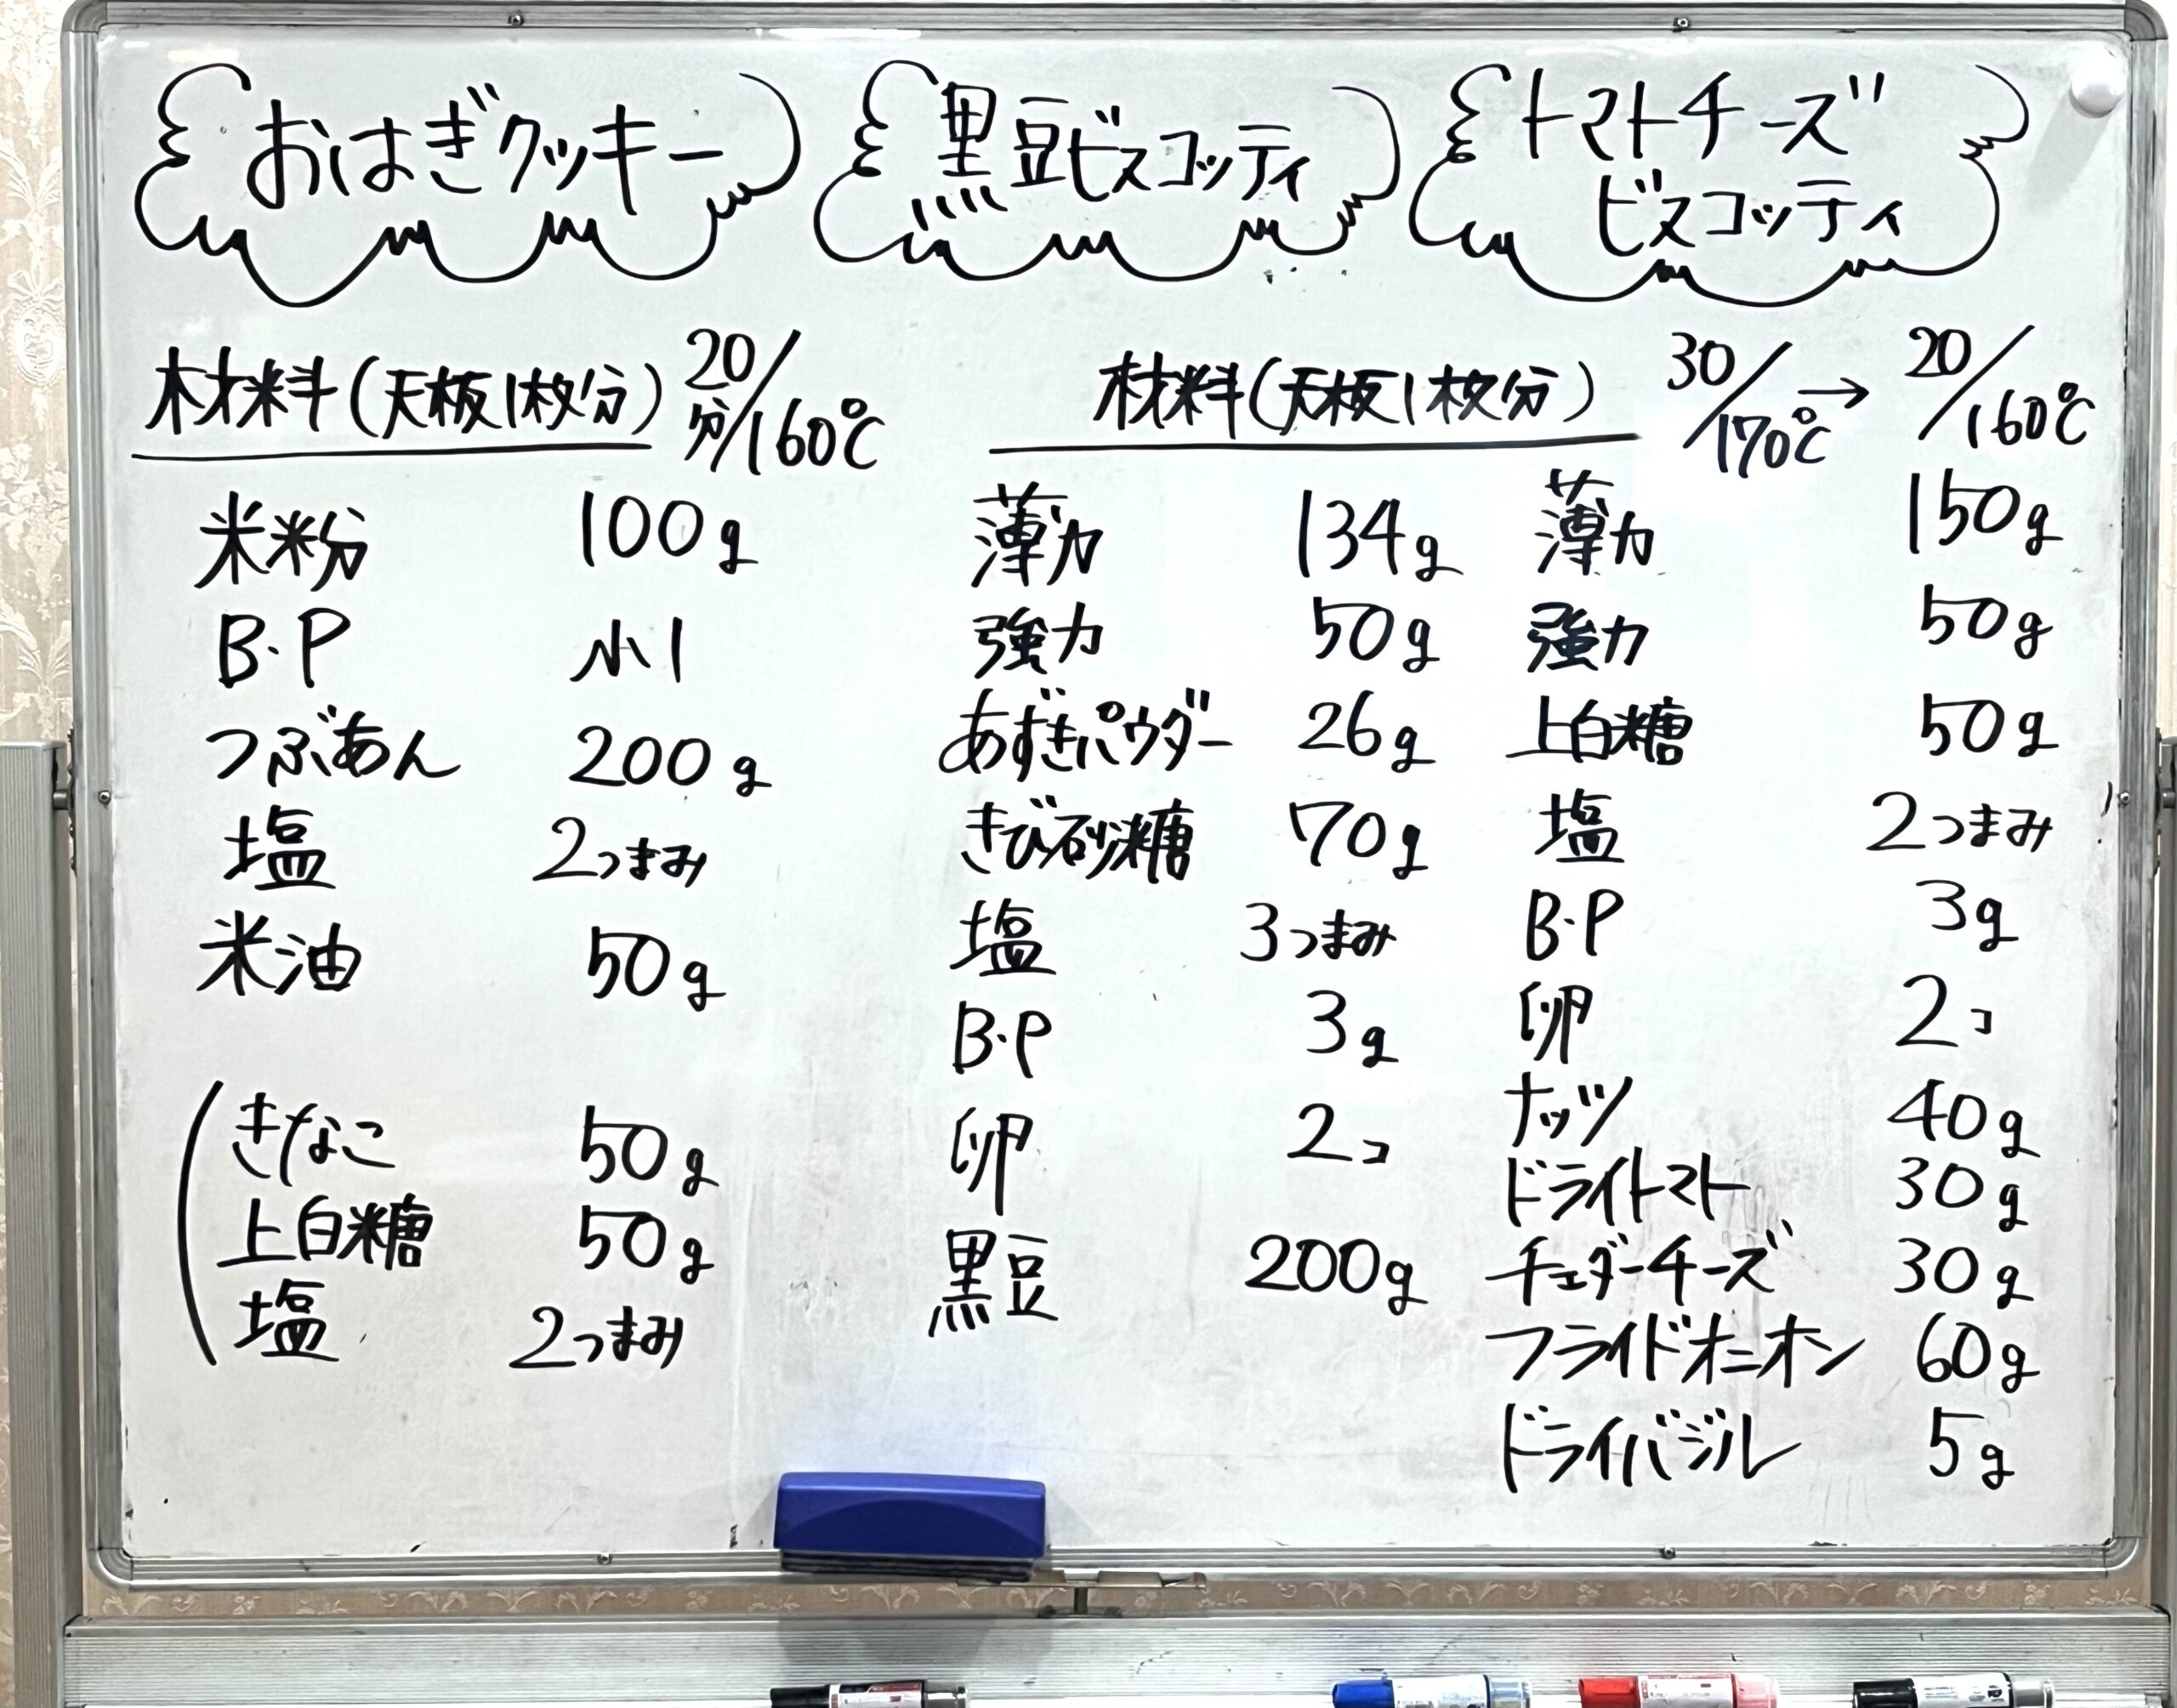 おはぎクッキー
材料(天板1枚分) 20分/160℃
米粉 100g
B・P 小1
つぶあん 200g
塩 2つまみ
米油 50g
きなこ 50g
上白糖 50g
塩 2つまみ
黒豆ビスコッティ
トマトチーズ
ビスコッティ
材料(天板1枚分) 30/170℃ → 20/160℃
薄力 134g
強力 50g
あずきパウダー 26g
きび砂糖 70g
塩 3つまみ
B・P 3g
卵 2コ
黒豆 200g
薄力 150g
強力 50g
上白糖 50g
塩 2つまみ
B・P 3g
卵 2コ
ナッツ 40g
ドライトマト 30g
チェダーチーズ 30g
フライドオニオン 60g
ドライバジル 5g